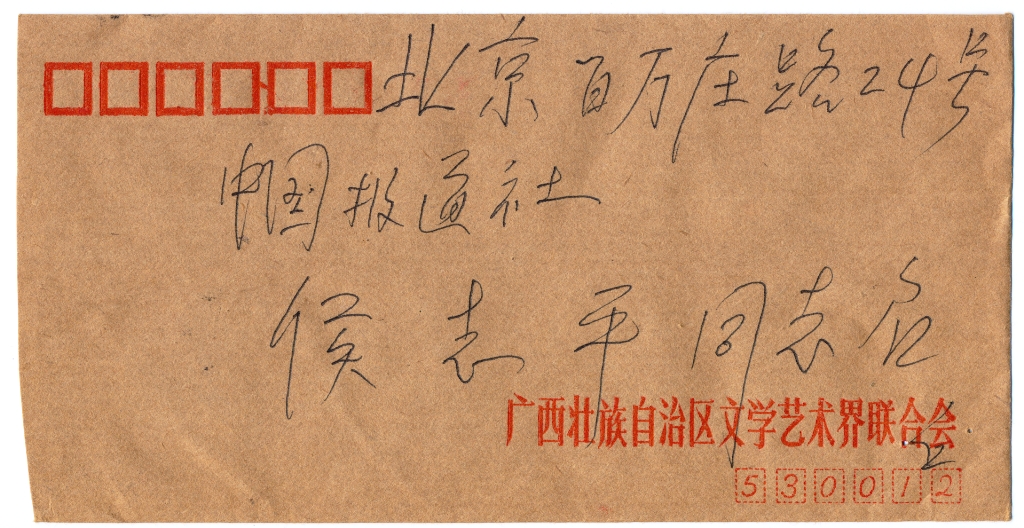 北京百万庄路24号
中国报道社
侯志平同志启
广西壮族自治区文学艺术界联合会
530012